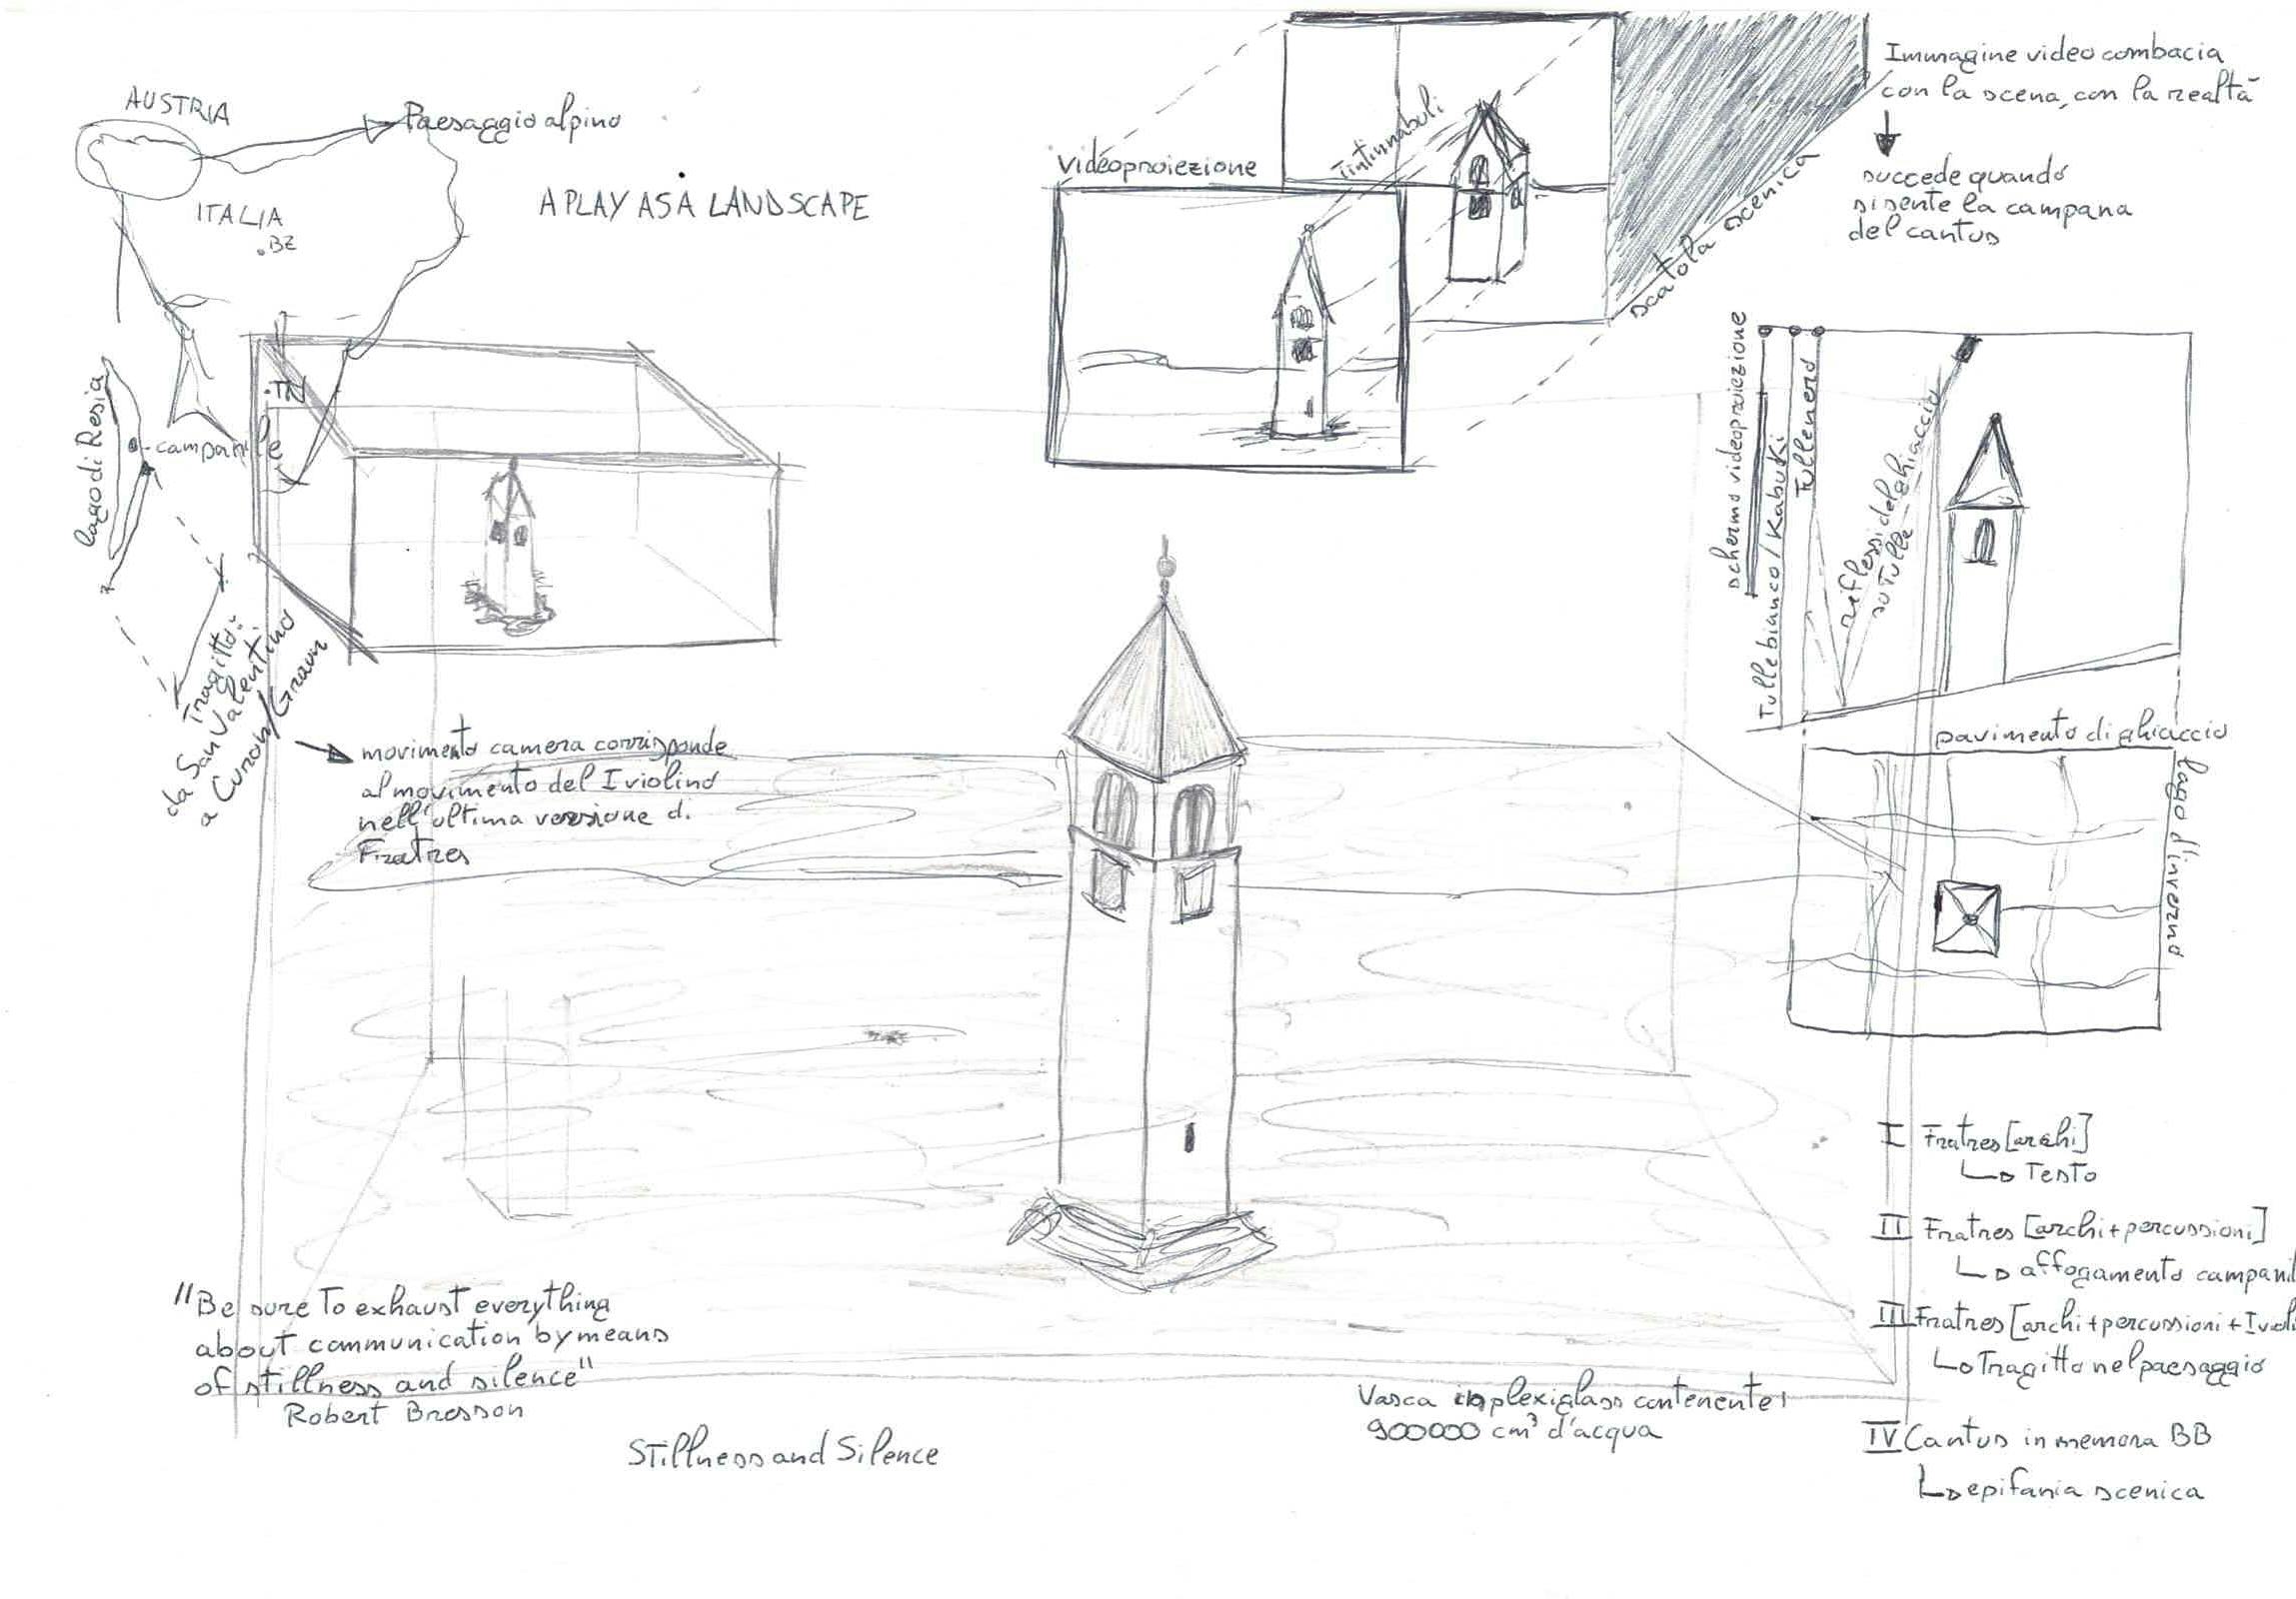 AUSTRIA
Paesaggio alpino
ITALIA
.BZ
A PLAY AS A LANDSCAPE
.TN
lago di Resia
campanile
Tragitto:
da San Valentino
a Curon/Graun
movimento camera corrisponde
al movimento del I violino
nell'ultima versione di
Fratres
videoproiezione
Tintinnabuli
scatola scenica
Immagine video combacia
con la scena, con la realtà
succede quando
si sente la campana
del cantus
schermo videoproiezione
Tulle bianco / Kabuki
Tulle nero
riflessi del ghiaccio
su tulle
pavimento di ghiaccio
lago d'inverno
I Fratres [archi]
Testo
II Fratres [archi+percussioni]
affogamento campanil
III Fratres [archi+percussioni+I viol
Tragitto nel paesaggio
IV Cantus in memora BB
epifania scenica
"Be sure to exhaust everything
about communication by means
of stillness and silence"
Robert Bresson
Stillness and Silence
Vasca in plexiglass contenente
900000 cm³ d'acqua